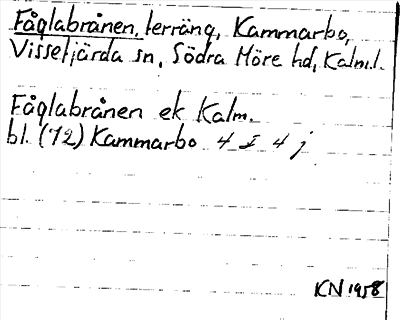 Fåglabrånen, terräng, Kammarbo,
Vissefjärda sn, Södra Möre hd, Kalm.l.
Fåglabrånen ek Kalm.
bl. (72) Kammarbo 4 I 4 j
KN 1958